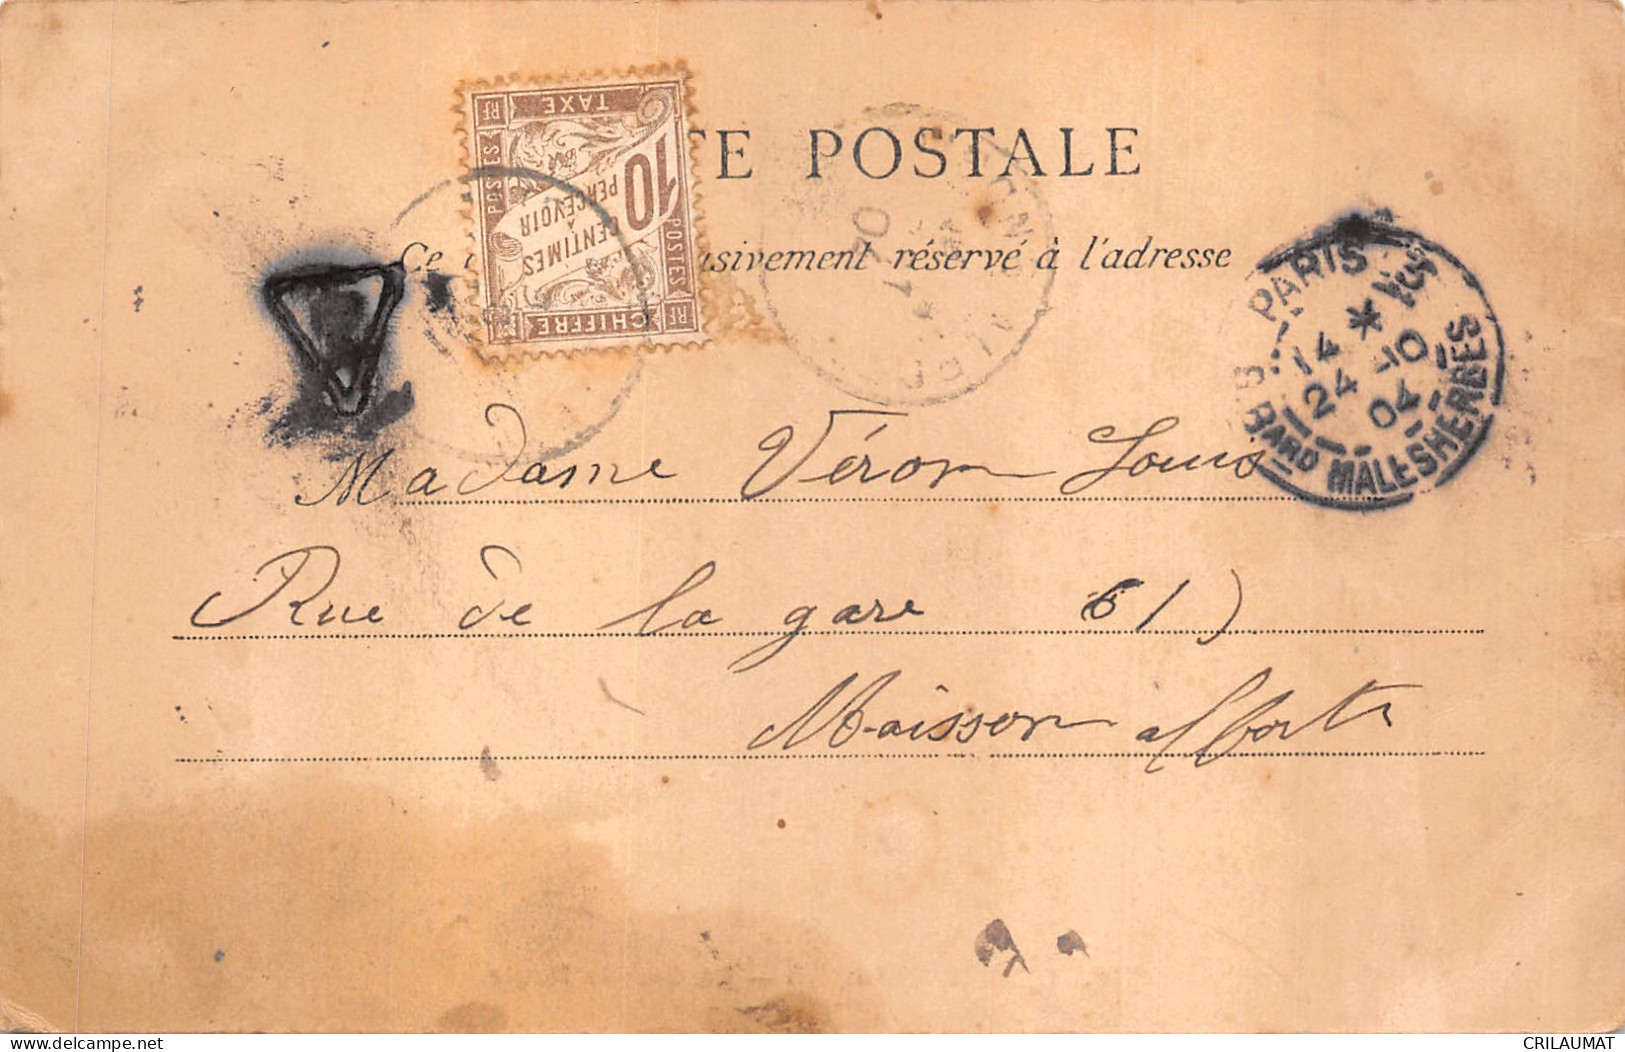 TE POSTALE
Ce usivement réservé à l'adresse
RF TAXE
POSTES
10 CENTIMES
À
PERCEVOIR
POSTES
RF CHIFFRE RF
PARIS
14 * 15
24 -10
04
BARD MALESHERBES
Madame Véron Louis
Rue de la gare 61)
Maisson alfort
CRILAUMAT